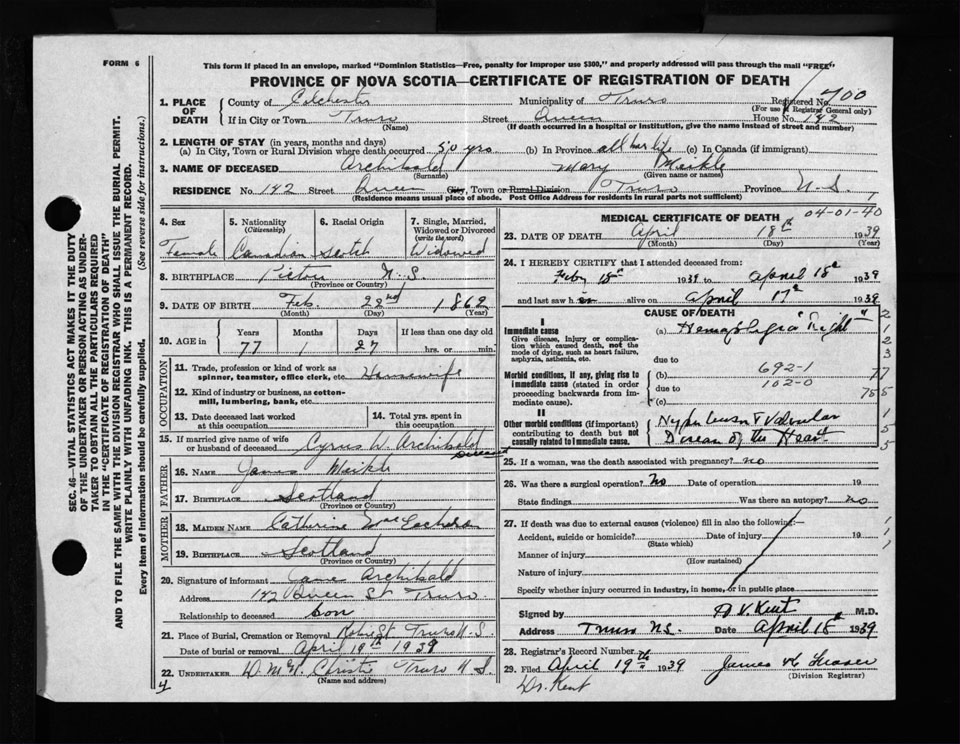 FORM 6
This form if placed in an envelope, marked "Dominion Statistics—Free, penalty for improper use $300," and properly addressed will pass through the mail "FREE"
PROVINCE OF NOVA SCOTIA—CERTIFICATE OF REGISTRATION OF DEATH
SEC. 46—VITAL STATISTICS ACT MAKES IT THE DUTY
OF THE UNDERTAKER OR PERSON ACTING AS UNDER-
TAKER TO OBTAIN ALL THE PARTICULARS REQUIRED
IN THE "CERTIFICATE OF REGISTRATION OF DEATH"
AND TO FILE THE SAME WITH THE DIVISION REGISTRAR WHO SHALL ISSUE THE BURIAL PERMIT.
WRITE PLAINLY WITH UNFADING INK. THIS IS A PERMANENT RECORD.
Every item of information should be carefully supplied. (See reverse side for instructions.)
1. PLACE OF DEATH County of Colchester Municipality of Truro Registered No. 700
(For use of Registrar General only)
If in City or Town Truro Street Queen House No. 142
(Name) (If death occurred in a hospital or institution, give the name instead of street and number)
2. LENGTH OF STAY (in years, months and days)
(a) In City, Town or Rural Division where death occurred 50 yrs (b) In Province all her life (c) In Canada (if immigrant)
3. NAME OF DECEASED Archibald Mary Meikle
(Surname) (Given name or names)
RESIDENCE No. 142 Street Queen City, Town or Rural Division Truro Province N.S.
(Residence means usual place of abode. Post Office Address for residents in rural parts not sufficient)
4. Sex Female
5. Nationality (Citizenship) Canadian
6. Racial Origin Scotch
7. Single, Married, Widowed or Divorced (write the word) Widowed
8. BIRTHPLACE Pictou N.S.
(Province or Country)
9. DATE OF BIRTH Feb. 22nd 1862
(Month) (Day) (Year)
10. AGE in Years 77 Months 1 Days 27 If less than one day old hrs. or min.
OCCUPATION
11. Trade, profession or kind of work as spinner, teamster, office clerk, etc. Housewife
12. Kind of industry or business, as cotton-mill, lumbering, bank, etc.
13. Date deceased last worked at this occupation
14. Total yrs. spent in this occupation
15. If married give name of wife or husband of deceased Cyrus W. Archibald Deceased
FATHER
16. NAME James Meikle
17. BIRTHPLACE Scotland
(Province or Country)
MOTHER
18. MAIDEN NAME Catherine
19. BIRTHPLACE Scotland
(Province or Country)
20. Signature of informant Archibald
Address 142 Queen St Truro
Relationship to deceased Son
21. Place of Burial, Cremation or Removal Robie St Truro N.S.
Date of burial or removal April 19th 1939
22. UNDERTAKER Christie Truro N.S.
(Name and address)
4
MEDICAL CERTIFICATE OF DEATH 04-01-40
23. DATE OF DEATH April 18th 1939
(Month) (Day) (Year)
24. I HEREBY CERTIFY that I attended deceased from:
Feby 18th 1939 to April 18th 1939
and last saw h er alive on April 17th 1939
CAUSE OF DEATH
I
Immediate cause (a) Hemaplegia "Right"
Give disease, injury or complication which caused death, not the mode of dying, such as heart failure, asphyxia, asthenia, etc.
due to
Morbid conditions, if any, giving rise to immediate cause (stated in order proceeding backwards from immediate cause).
(b) 692-1
due to 102-0
(c)
II
Other morbid conditions (if important) contributing to death but not causally related to immediate cause.
& Valvular
Disease of the Heart
25. If a woman, was the death associated with pregnancy? no
26. Was there a surgical operation? No Date of operation 19
State findings Was there an autopsy? no
27. If death was due to external causes (violence) fill in also the following:—
Accident, suicide or homicide? Date of injury 19
(State which)
Manner of injury
(How sustained)
Nature of injury
Specify whether injury occurred in industry, in home, or in public place
Signed by V. Kent M.D.
Address Truro N.S. Date April 18th 1939
28. Registrar's Record Number
29. Filed April 19th 1939 James
(Division Registrar)
Dr. Kent